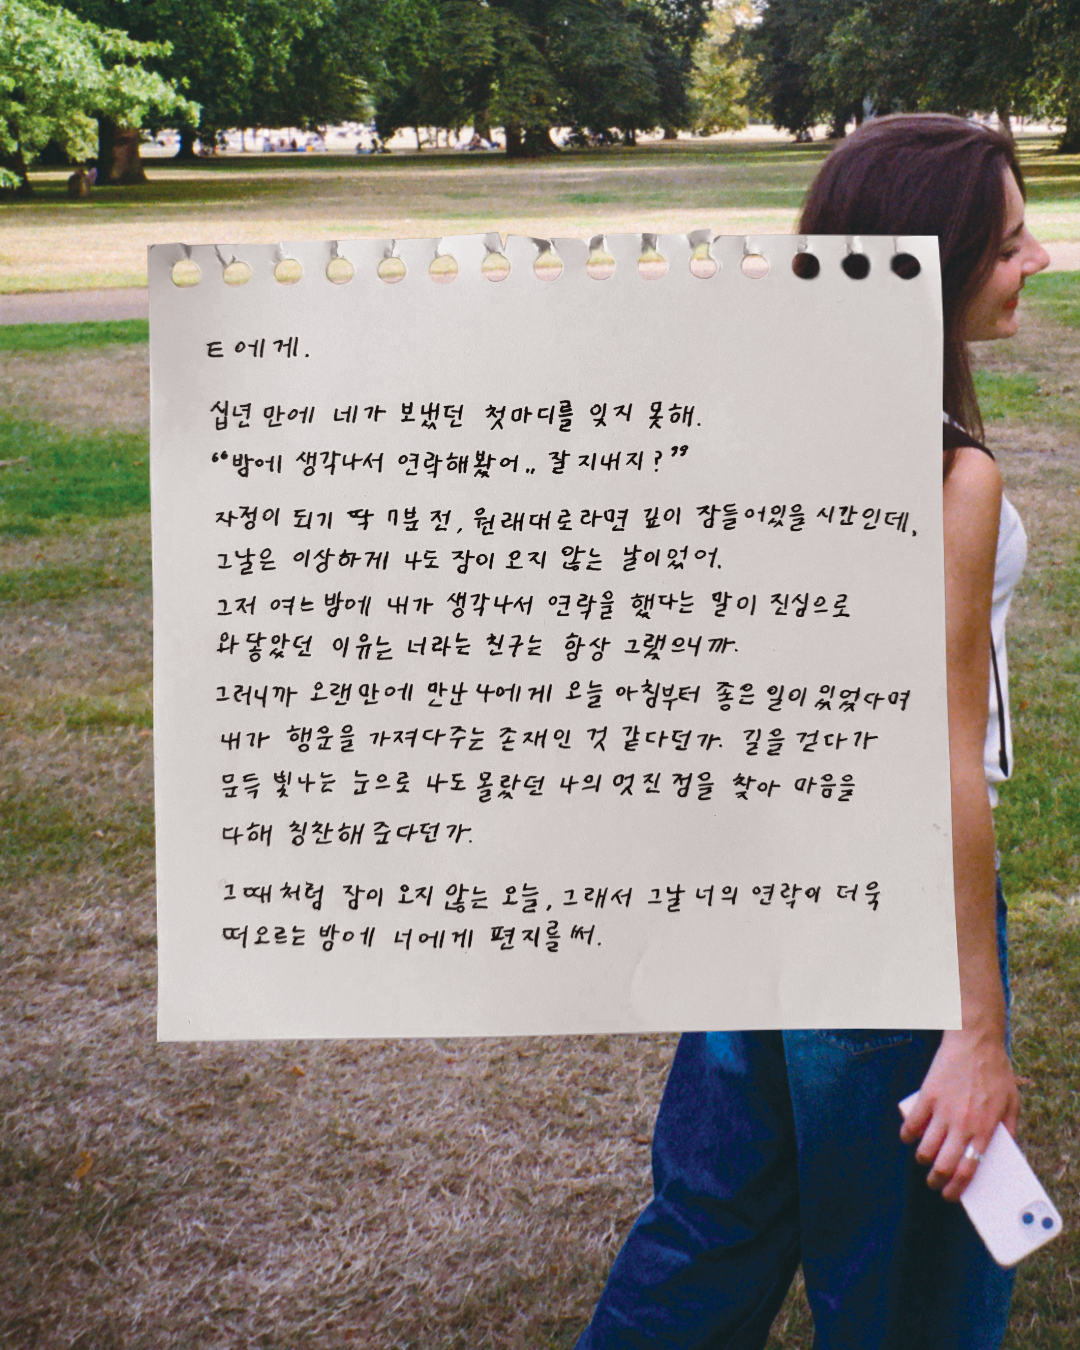 E에게.
십년 만에 네가 보냈던 첫마디를 잊지 못해.
“밤에 생각나서 연락해봤어.. 잘 지내지?”
자정이 되기 딱 7분 전, 원래대로라면 깊이 잠들어있을 시간인데,
그날은 이상하게 나도 잠이 오지 않는 날이었어.
그저 여느 밤에 내가 생각나서 연락을 했다는 말이 진심으로
와닿았던 이유는 너라는 친구는 항상 그랬으니까.
그러니까 오랜만에 만난 나에게 오늘 아침부터 좋은 일이 있었다며
내가 행운을 가져다주는 존재인 것 같다던가. 길을 걷다가
문득 빛나는 눈으로 나도 몰랐던 나의 멋진 점을 찾아 마음을
다해 칭찬해 준다던가.
그때처럼 잠이 오지 않는 오늘, 그래서 그날 너의 연락이 더욱
떠오르는 밤에 너에게 편지를 써.